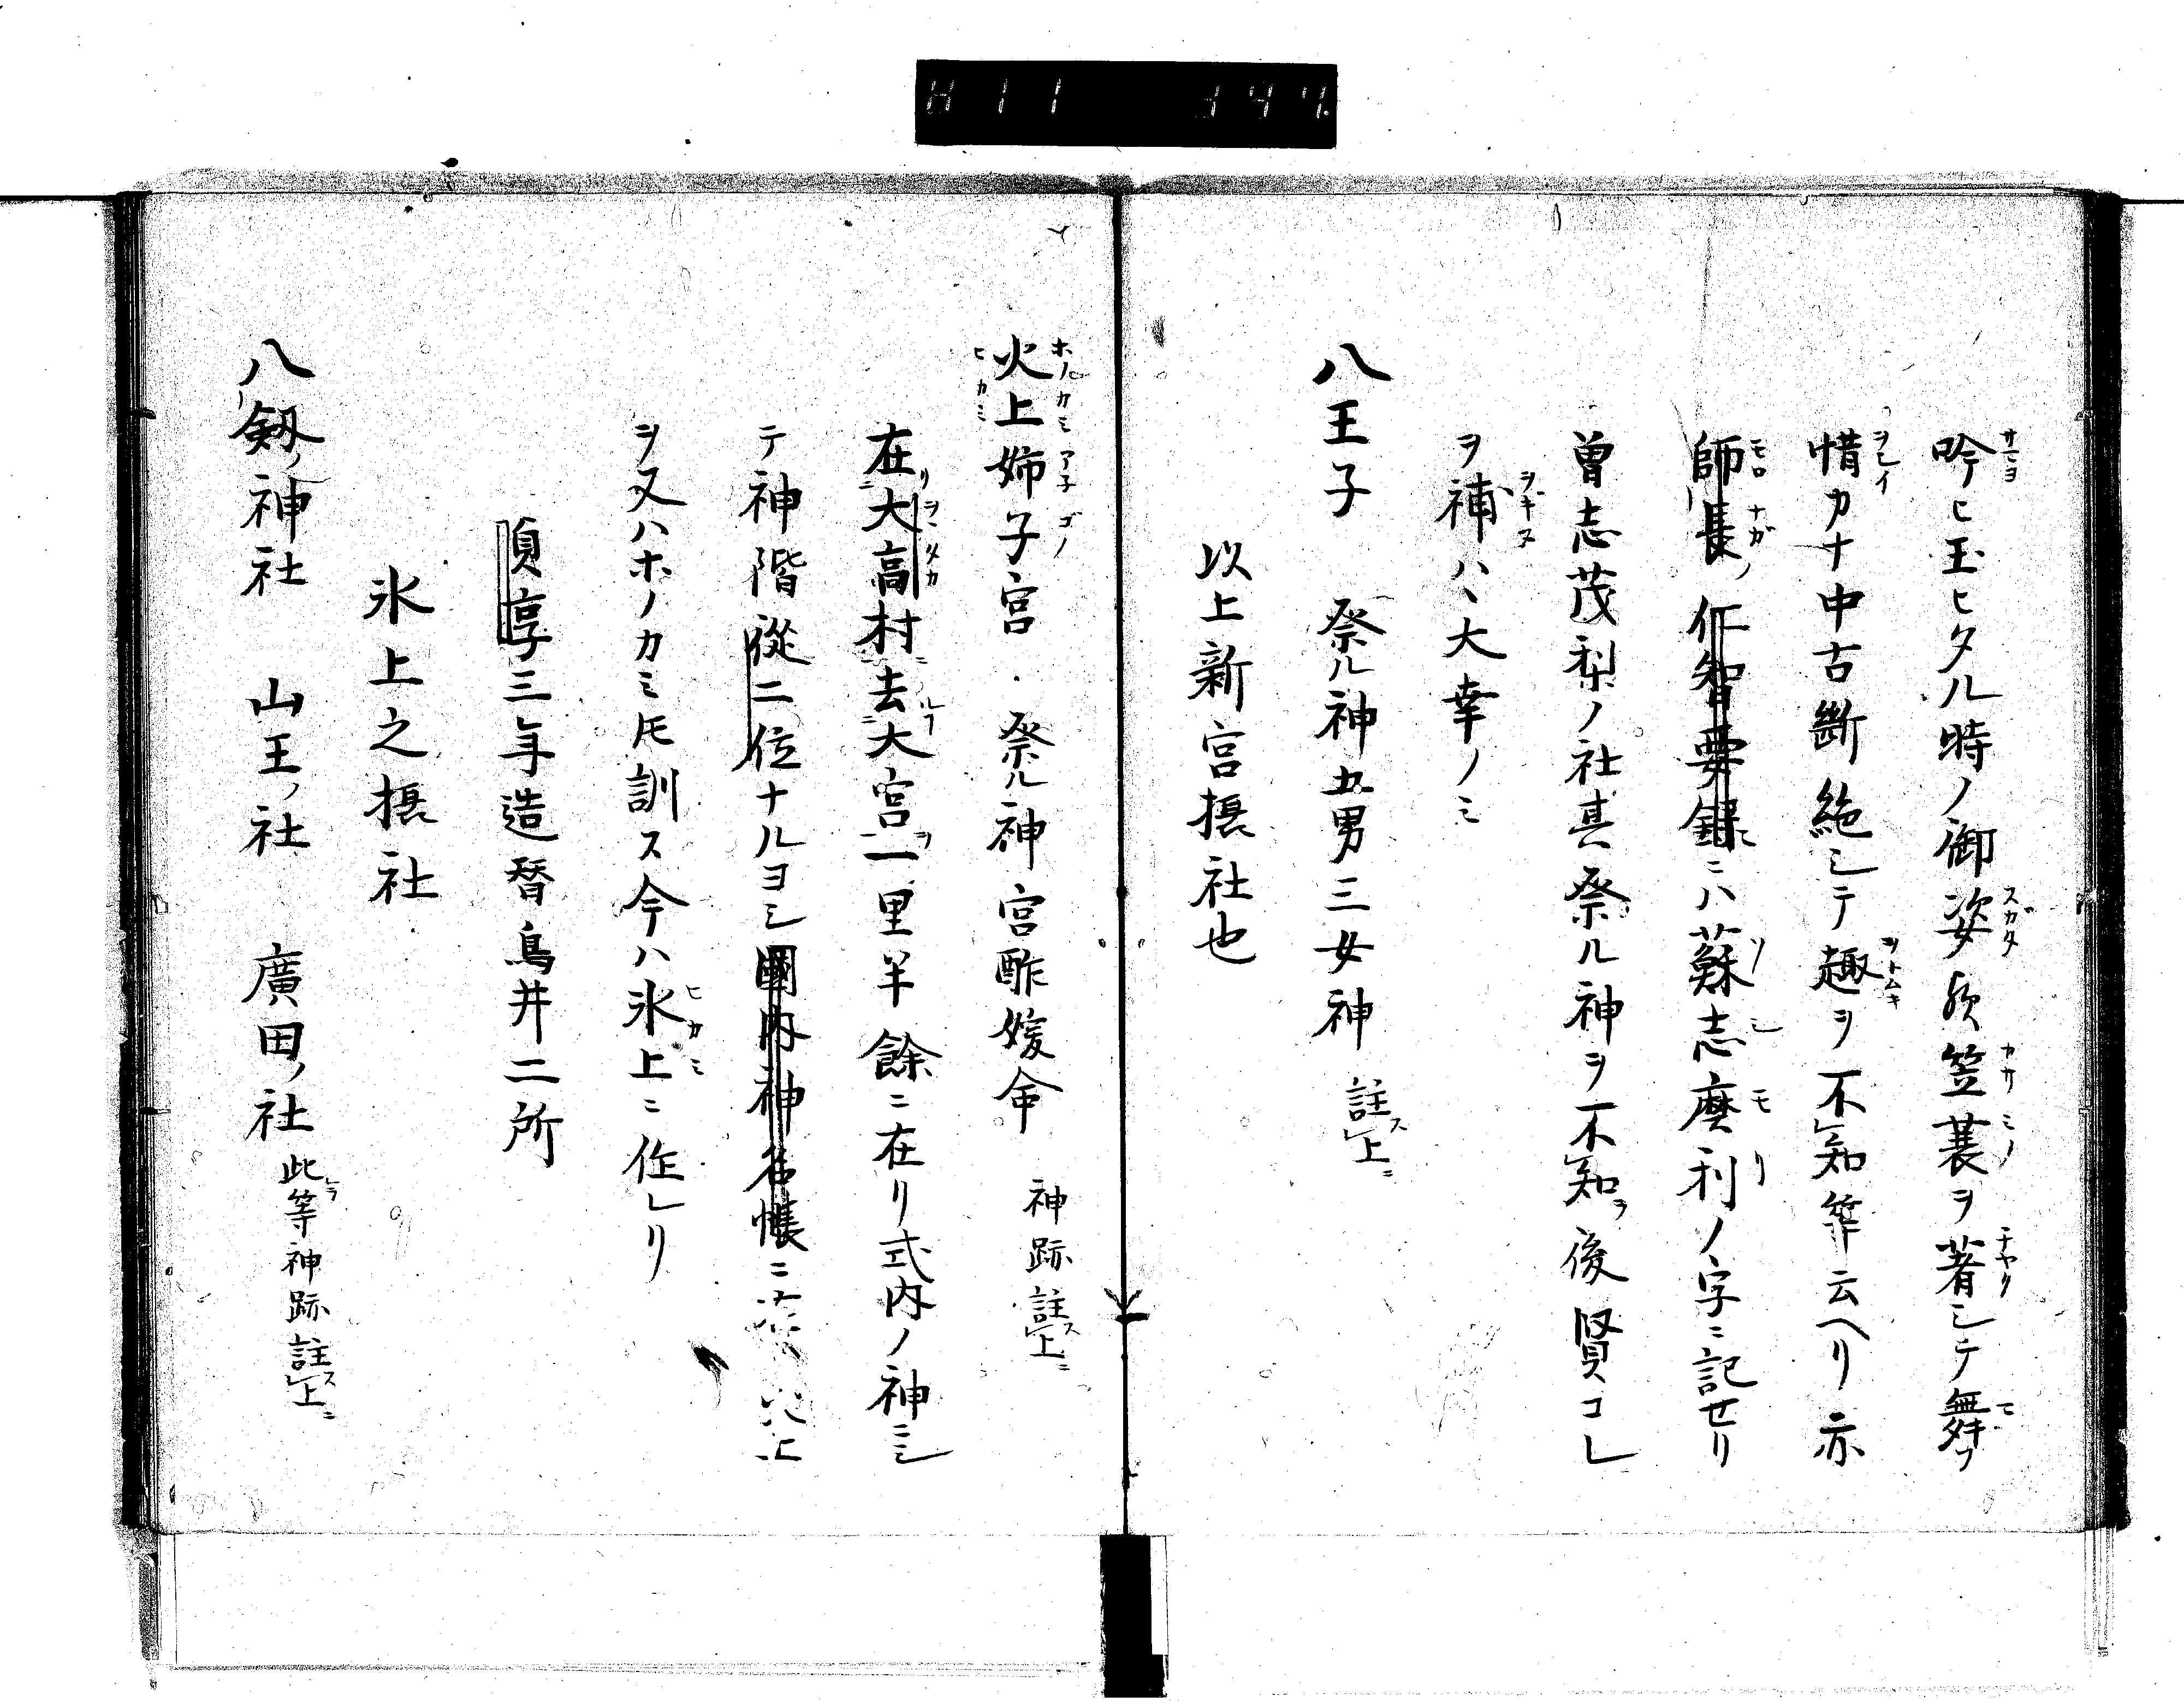 吟ヒ玉ヒタル時ノ御姿於笠蓑ヲ著シテ舞フ
惜カナ中古断絶シテ趣ヲ不知等云ヘリ亦
師長ノ仁智要録ニハ蘇志麼利ノ字ニ記せリ
曽志茂梨ノ社其祭ル神ヲ不知後賢コレ
ヲ補ハヽ大幸ノミ
八王子 祭ル神五男三女神 註上ニ
以上新宮摂社也
火上姉子宮 祭ル神宮酢媛命 神跡註上ニ
在大高村去大宮一里半餘ニ在リ式内ノ神ニシ
テ神階從二位ナルヨシ國内神名帳ニ 上
ヲ又ハホノカミトモ訓ス今ハ氷上ニ作レリ
貞享三年造替鳥井二所
氷上之摂社
八剱ノ神社 山王ノ社 廣田ノ社 此等神跡註上ニ